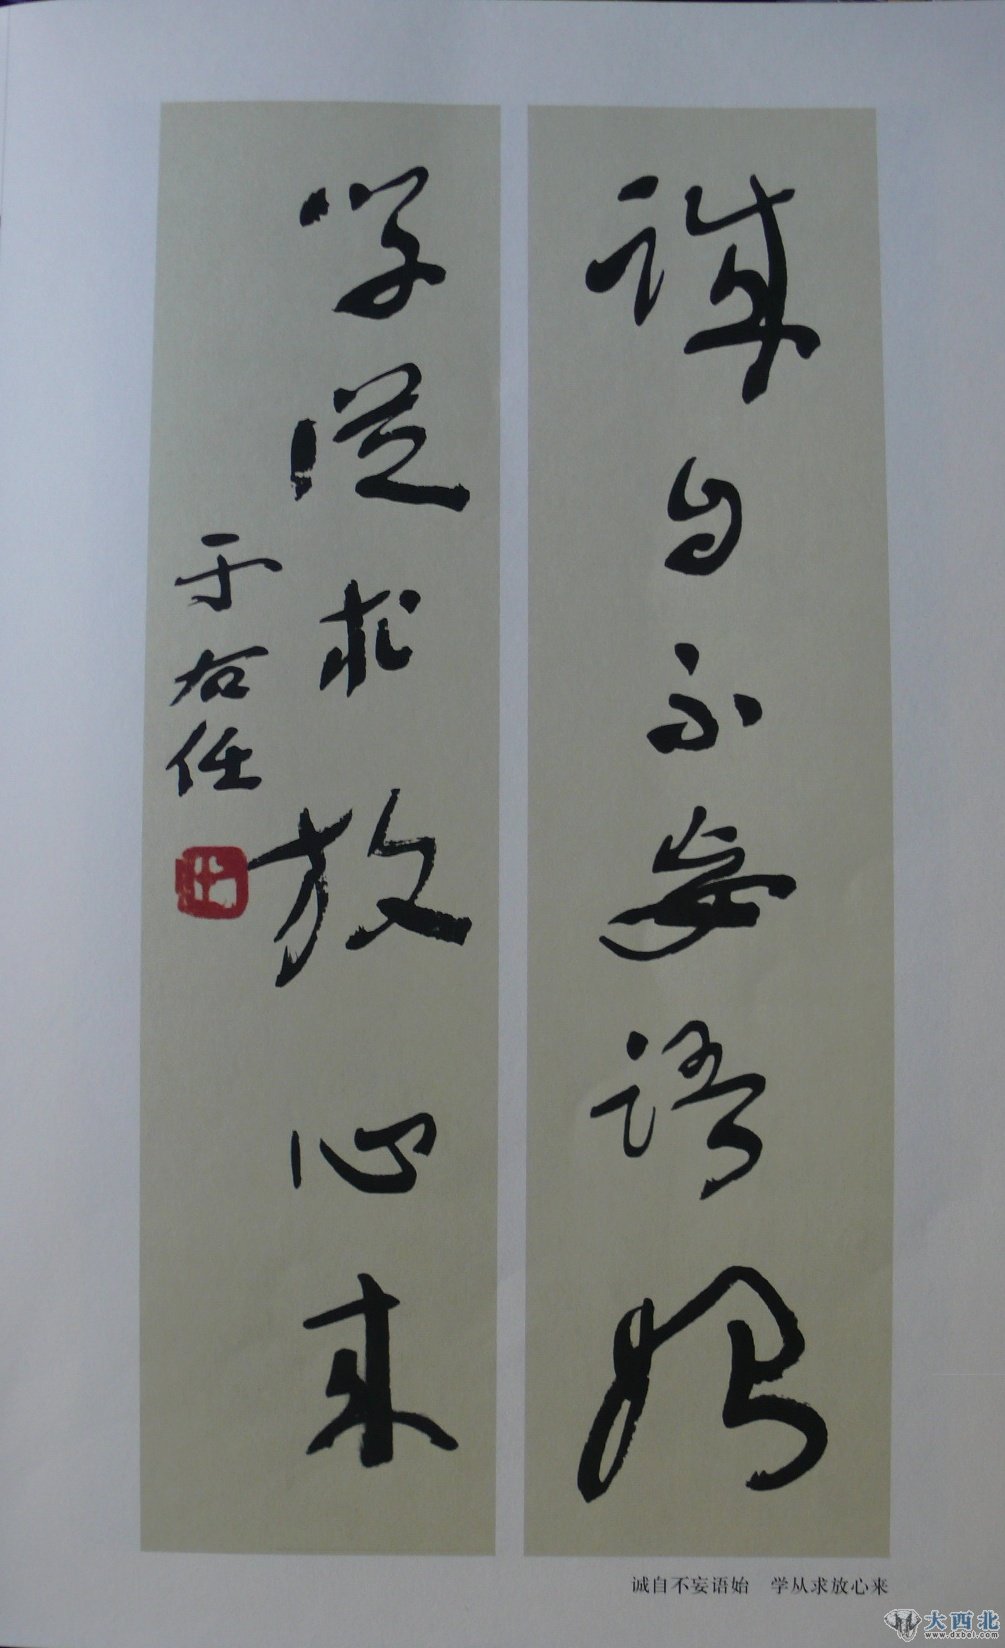 誠自不妄語始
学從求放心来
于右任
诚自不妄语始　学从求放心来
大西北
www.dxbei.com